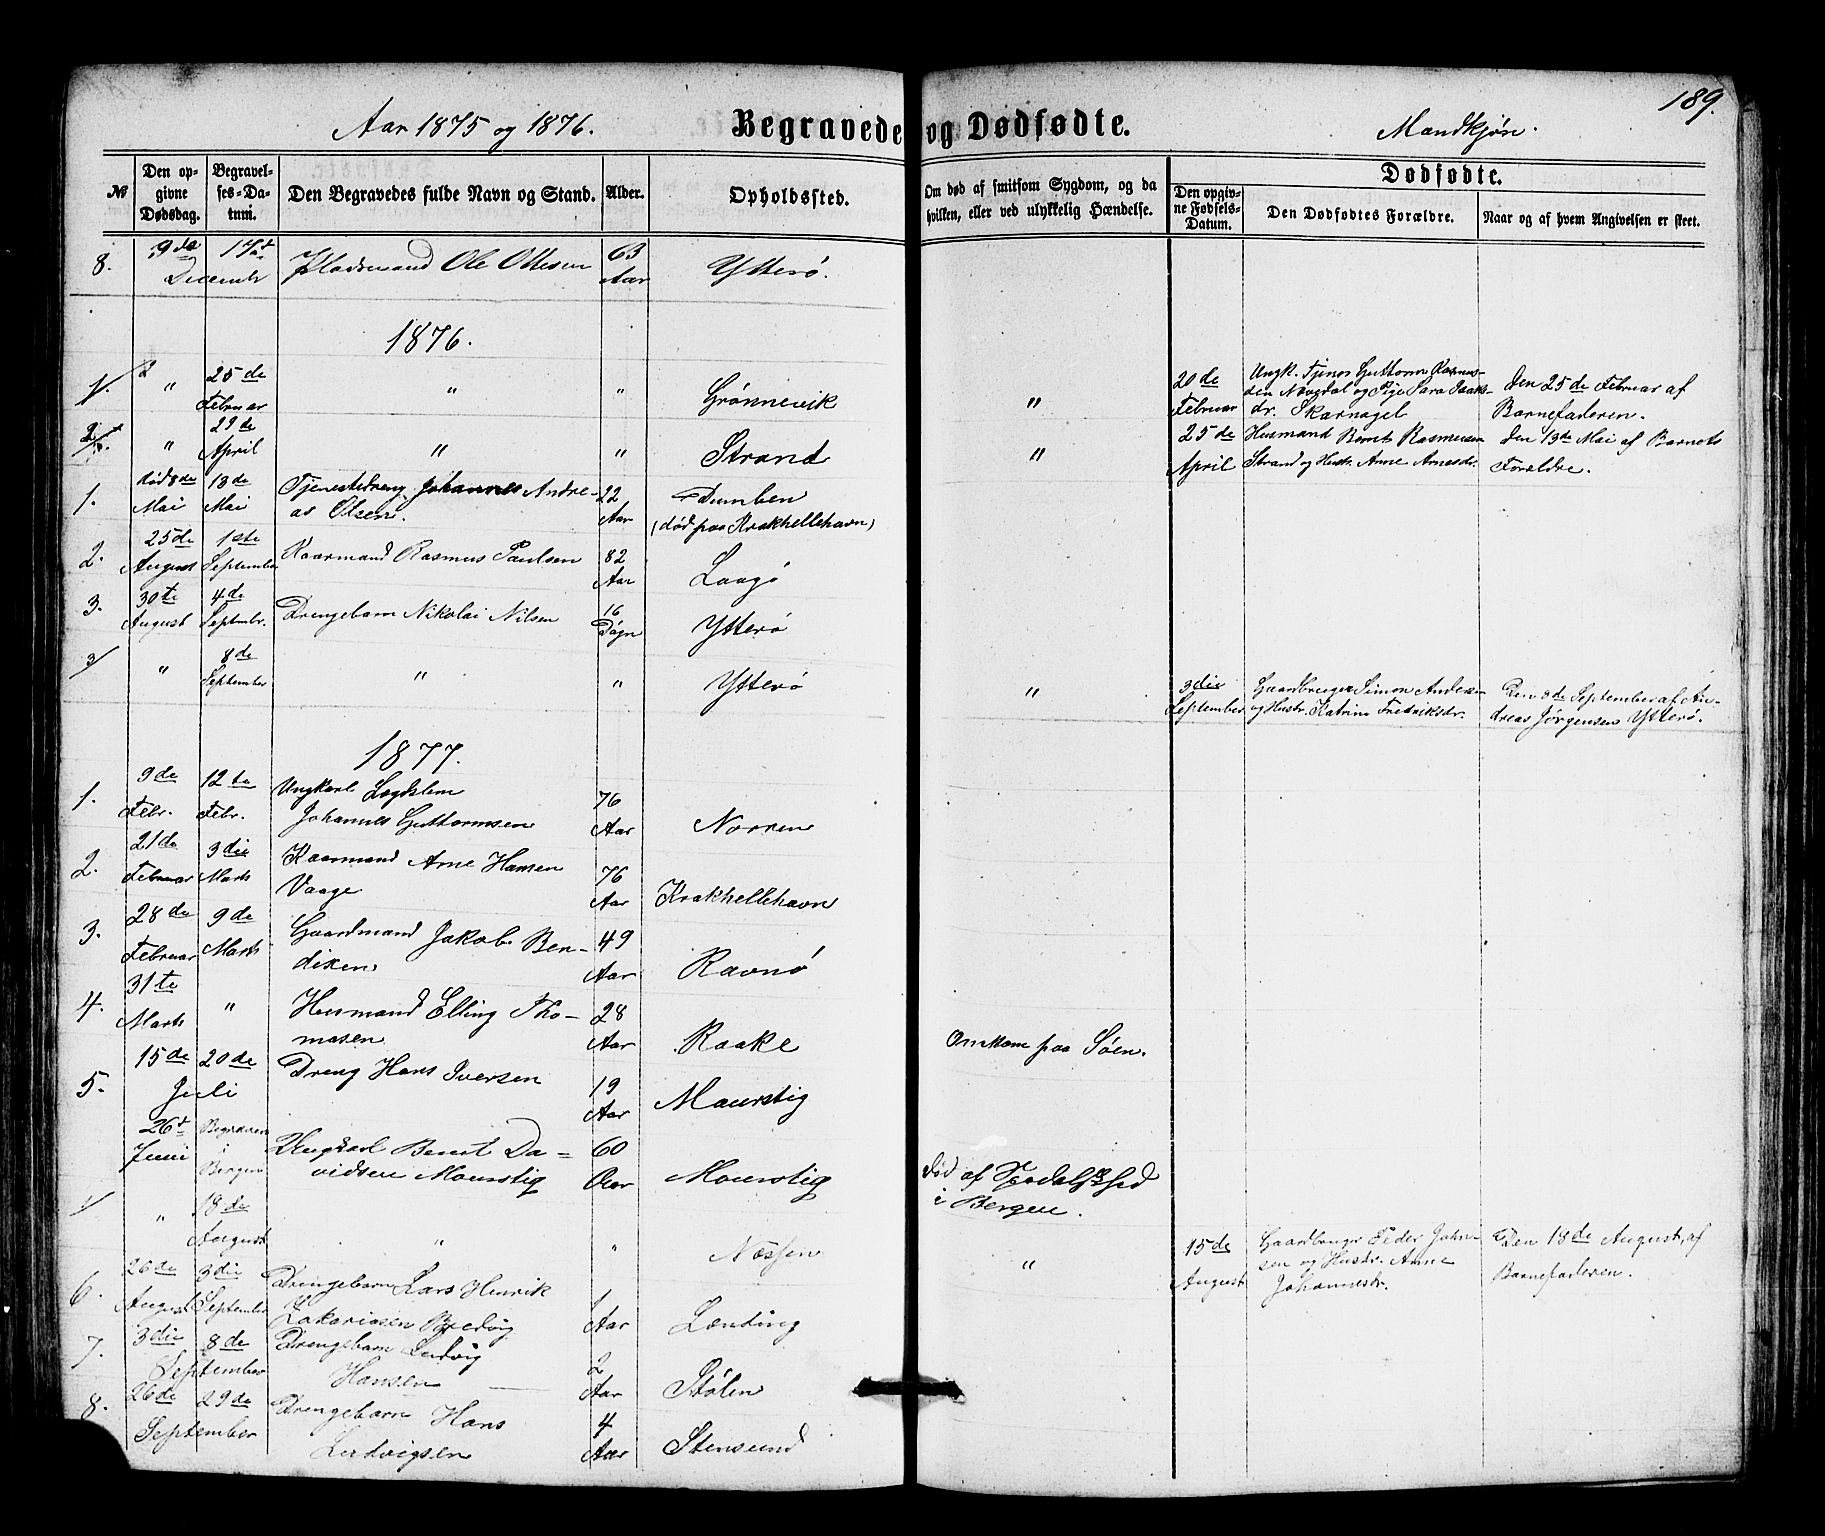 189.
Aar 1875 og 1876. Begravede og Dødfødte. Mandkjøn.
№ Den opgivne Dødsdag. Begravelses-Datum. Den Begravedes fulde Navn og Stand. Alder. Opholdssted. Om død af smitsom Sygdom, og da hvilken, eller ved ulykkelig Hændelse. Dødfødte. Den opgivne Fødsels-Datum. Den Dødfødtes Forældre. Naar og af hvem Angivelsen er skeet.
8. 9de 17de December Pladsmand Ole Ottesen 63 Aar Ytterø.
1876.
1. " 25de Februar " " Grønnevik " 20de Februar Ungk. Tjener Guttorm Rasmussen Nævgdal og Pige Sara Isaksdr. Skarnagel Den 25de Februar af Barnefaderen.
2. " 29de April " " Strand " 25de April Husmand Bernt Rasmussen Strand og Hustr. Anne Arnesdr. Den 13de Mai af Barnets Forældre.
1. død 8de Mai 13de Mai Tjenestedreng Johannes Andreas Olsen. 22 Aar Dumben (død paa Krakhellehavn)
2. 25de August 1ste September Kaarmand Rasmus Paulsen 82 Aar Laagø
3. 30te August 4de Septembr. Drengebarn Nikolai Nilsen 16 Døgn Ytterø
3/ " 8de September " " Ytterø " 3die September Gaardbruger Simon Andersen og Hustr. Katrine Fredriksdr. Den 8de September af Andreas Jørgensen Ytterø.
1877.
1. 9de Febr. 12te Febr. Ungkarl Lægdslem Johannes Guttormsen 76 Aar Norren
2. 21de Februar 3die Marts Kaarmand Arne Hansen Vaage 76 Aar Krakhellehavn
3. 28de Februar 9de Marts Gaardmand Jakob Bendixen 49 Aar Ravnø
4. 31te Marts " Husmand Elling Thomasen 28 Aar Raake Omkom paa Søen.
5. 15de 20de Juli Dreng Hans Iversen 19 Aar Maurstig
26d Juni Begraven i Bergen Ungkarl Bernt Davidsen Maurstig 60 Aar Maurstig Død af Spedalskhed i Bergen.
1/ " 18de August " " Næssen " 15de August Gaardbruger Peder Johnsen og Hustr. Anne Johannesdr. Den 18de August, af Barnefaderen.
6. 26de August 3die September Drengebarn Lars Henrik Zakariasen Bredvig 1 Aar Lænding
7. 3die 8de September Drengebarn Ludvig Hansen 2 Aar Stølen
8. 26de 29de September Drengebarn Hans Ludvigsen 4 Aar Stensund